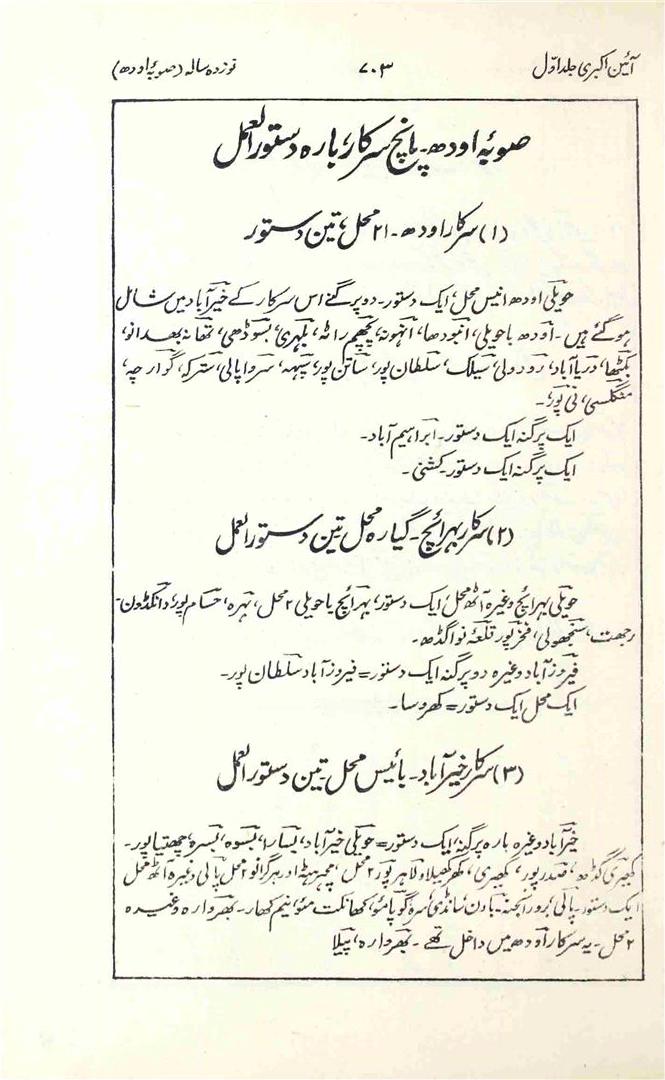 آئین اکبری جلد اوّل ۷۰۳ نوزدہ سالہ (صوبۂ اودھ)
صوبۂ اودھ۔ پانچ سرکار، بارہ دستور العمل
(۱) سرکار اودھ۔ ۲۱ محل، تین دستور
حویلی اودھ انیس محل، ایک دستور۔ دو پرگنے اس سرکار کے خیرآباد میں شامل
ہوگئے ہیں۔ اودھ با حویلی، انبودھا، انہونہ، پچھم راٹھ، بلہری، بسوڈھی، تھانہ بھدانو،
بکٹھا، دریا آباد، رودولی، سیلک، سلطان پور، ساتن پور، سپہہ، سروا پالی، سترکہ، گوارچہ،
منگلسی، نی پور۔
ایک پرگنہ ایک دستور۔ ابراہیم آباد۔
ایک پرگنہ ایک دستور۔ کشنی۔
(۲) سرکار بہرائچ۔ گیارہ محل تین دستور العمل
حویلی بہرائچ وغیرہ آٹھ محل، ایک دستور، بہرائچ با حویلی ۲ محل، بہرہ، حسام پور، دانگڈون۔
رجھت، سنجھولی، فخر پور قلعۂ نواگڈھ۔
فیروز آباد وغیرہ دو پرگنہ ایک دستور = فیروز آباد سلطان پور۔
ایک محل ایک دستور = کھروسا۔
(۳) سرکار خیرآباد۔ بائیس محل۔ تین دستور العمل
خیرآباد وغیرہ بارہ پرگنہ، ایک دستور = حویلی خیرآباد، بسارا، بسوہ، بسرہ، چھتیاپور۔
کھیری گڈھ، صدر پور، کھیری، کھرکھیلا و لاہر پور ۲ محل، مچھرہٹہ اور ہرگرانو ۲ محل پالی وغیرہ آٹھ محل
ایک دستور۔ پالی، برور انجنہ۔ باون سانڈی، سرہ، گوپامئو، کھانکت مئو، نیم کھار۔ بھروارہ وغیرہ
۲ محل۔ یہ سرکار اودھ میں داخل تھے۔ بھروارہ، پیلا